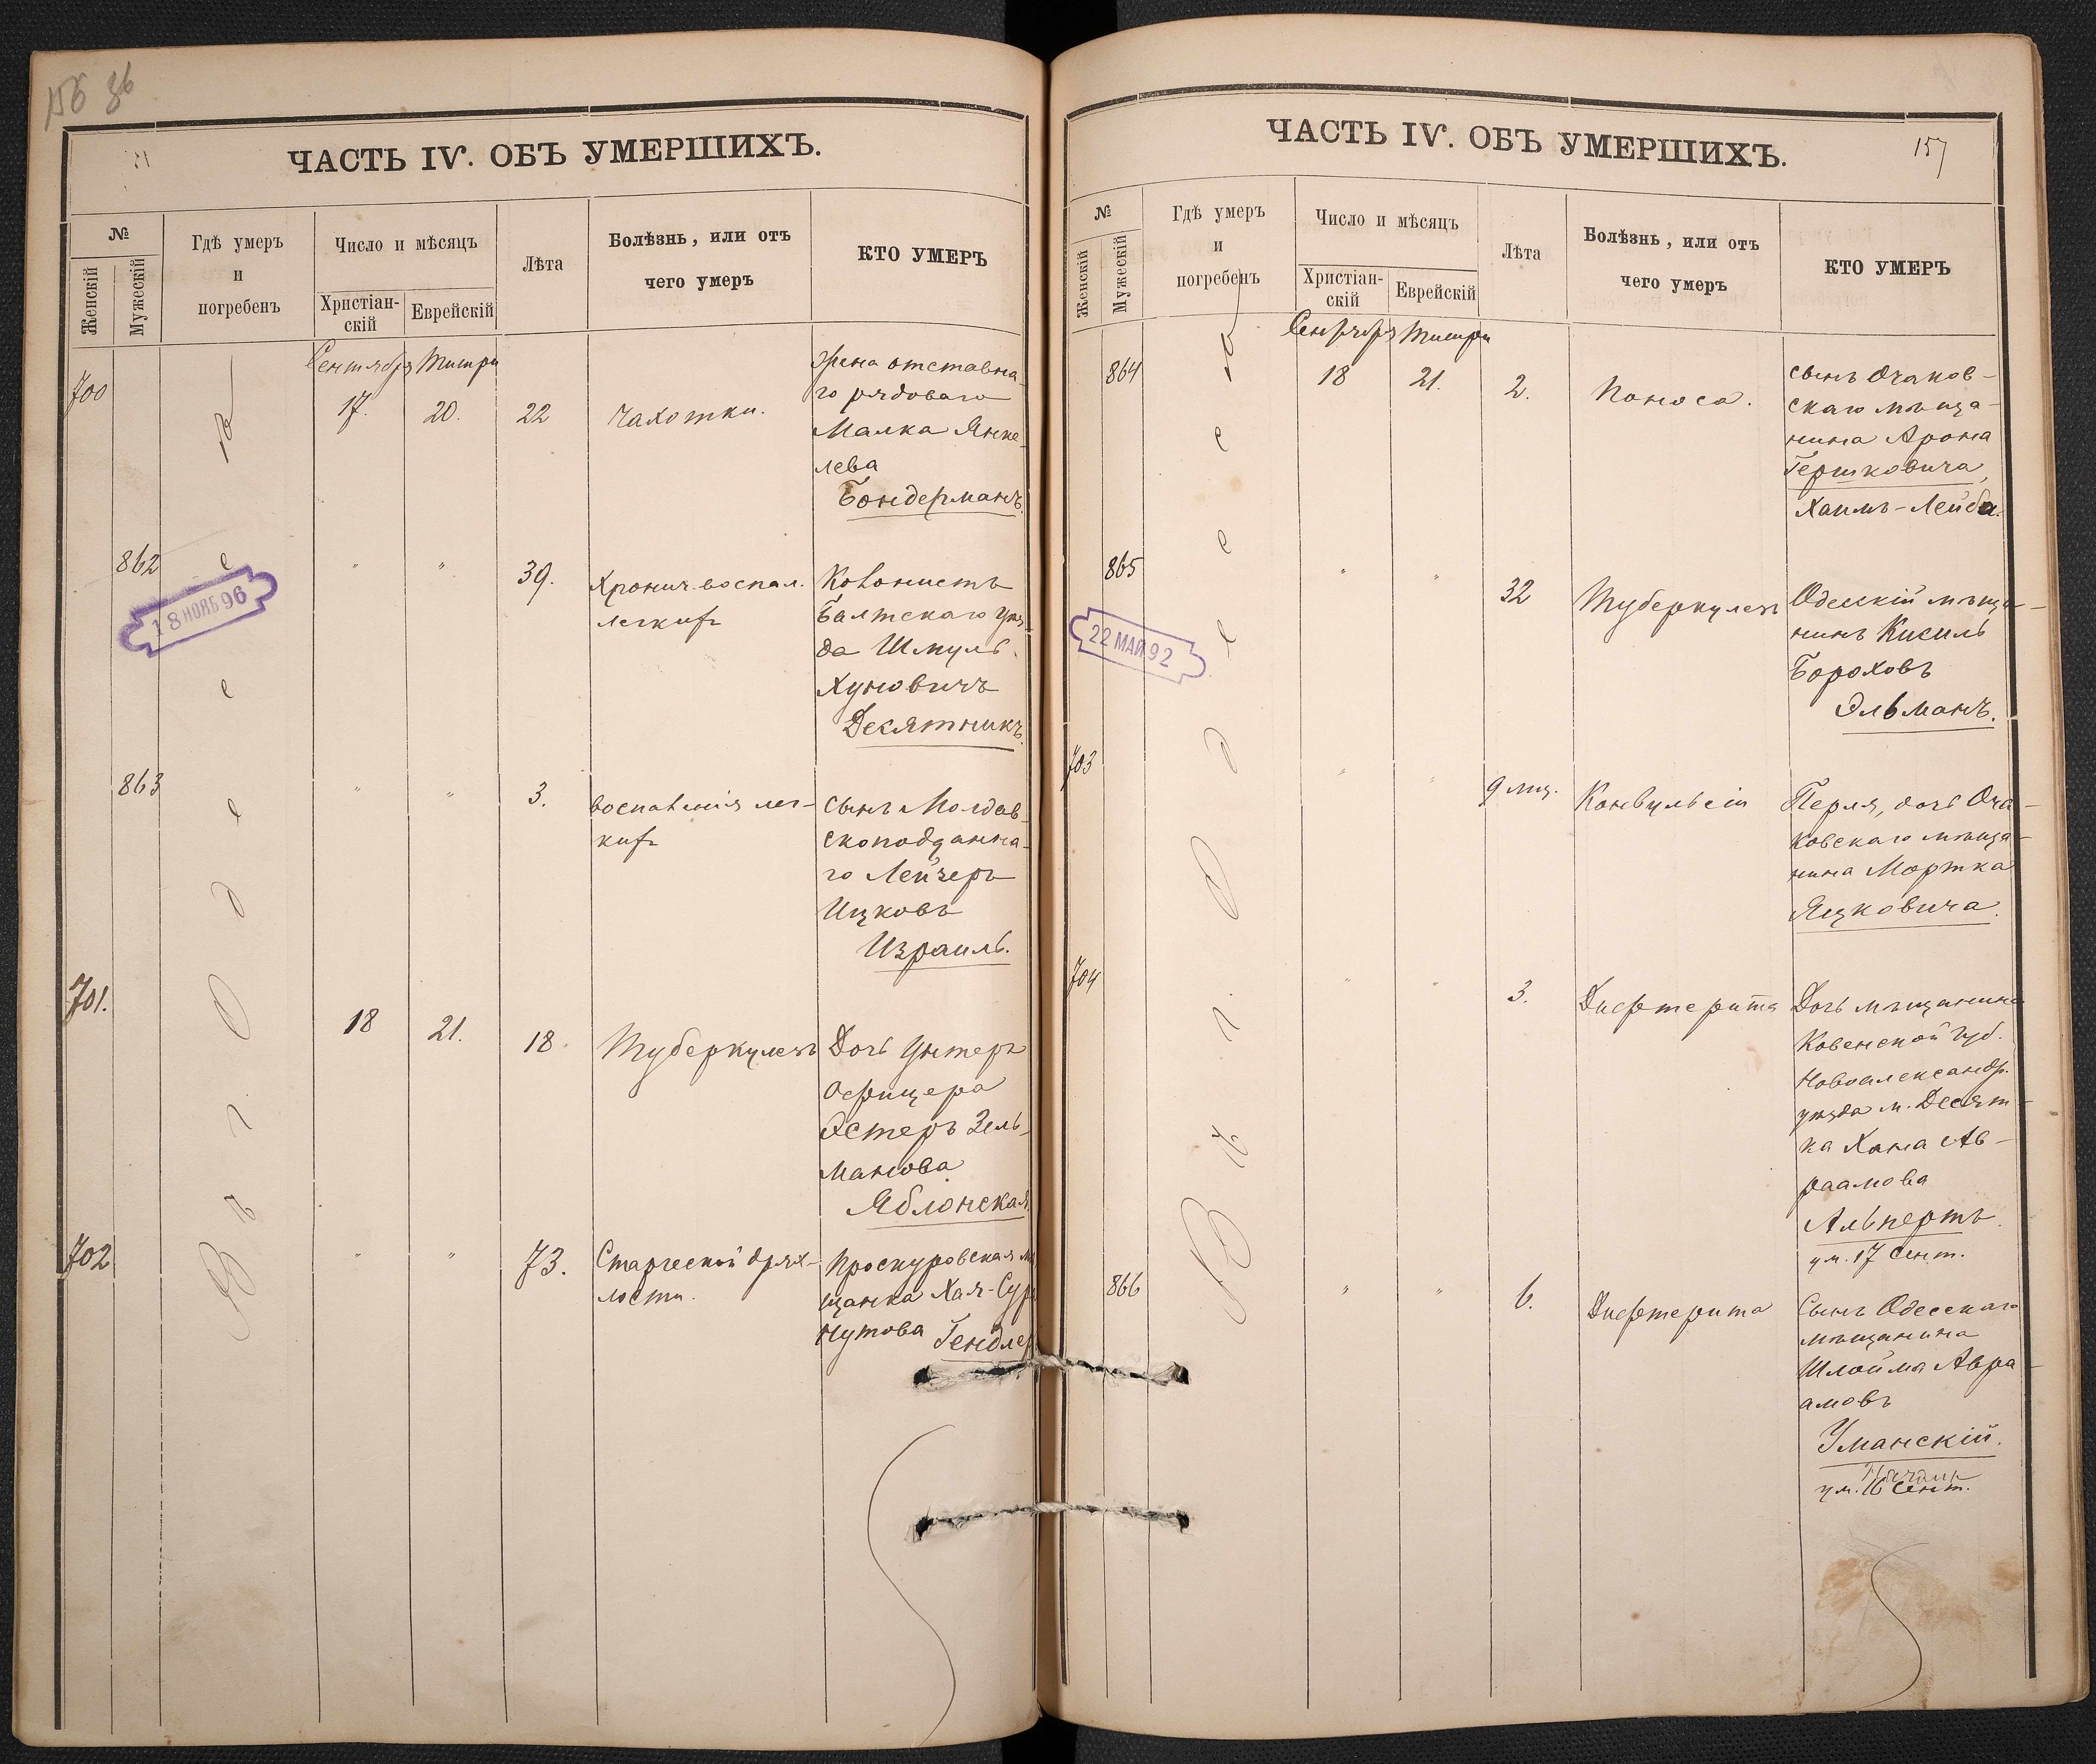 156 36
ЧАСТЬ IV. ОБЪ УМЕРШИХЪ.
№
Женскій
Мужескій
Гдѣ умеръ
и
погребенъ
Число и мѣсяцъ
Христіан-
скій
Еврейскій
Лѣта
Болѣзнь, или отъ
чего умеръ
КТО УМЕРЪ
Въ г. Одессе
Сентября Тишри
700
17. 20. 22 Чахотки.
Жена отставна-
го рядоваго
Малка Янке-
лева
Бондерманъ.
862
18 НОЯБ 96
" " 39.
Хронич. воспал.
легкихъ
Колонистъ
Балтскаго уѣз-
да Шмуль
Хуновичъ
Десятникъ.
863
" " 3.
воспаленія лег-
кихъ
Сынъ Молдав-
скоподданна-
го Лейзеръ
Ицковъ
Израиль.
701.
18 21. 18. Туберкулезъ
Дочь унтеръ
офицера
Эстеръ Зель-
манова
Яблонская
702
" " 73.
Старческой дрях-
лости.
Проскуровская мѣ
щанка Хая-Сур
Нутова Гендлер
ЧАСТЬ IV. ОБЪ УМЕРШИХЪ.
157
№
Женскій
Мужескій
Гдѣ умеръ
и
погребенъ
Число и мѣсяцъ
Христіан-
скій
Еврейскій
Лѣта
Болѣзнь, или отъ
чего умеръ
КТО УМЕРЪ
Въ г. Одессе
Сентября Тишри
864
18 21. 2. Поноса.
сынъ Очаков-
скаго мѣща-
нина Арона
Гершковича,
Хаимъ-Лейба.
865
22 МАЙ 92
" " 32 Туберкулезъ
Одесскій мѣща-
нинъ Кисиль
Бороховъ
Эльманъ.
703
" " 9 мц. Конвульсіи
Перля, дочь Оча-
ковскаго мѣща-
нина Мортка
Яцковича.
704
" " 3. Дифтерита
Дочь мѣщанина
Ковенской губ.
Новоалександр.
уѣзда м. Десят-
ка Хана Ав-
раамова
Альпертъ.
ум. 17 Сент.
866
" " 6. Дифтерита
Сынъ Одесскаго
мѣщанина
Шлойма Авра-
амовъ
Уманскій.
ум. 16 Сент.